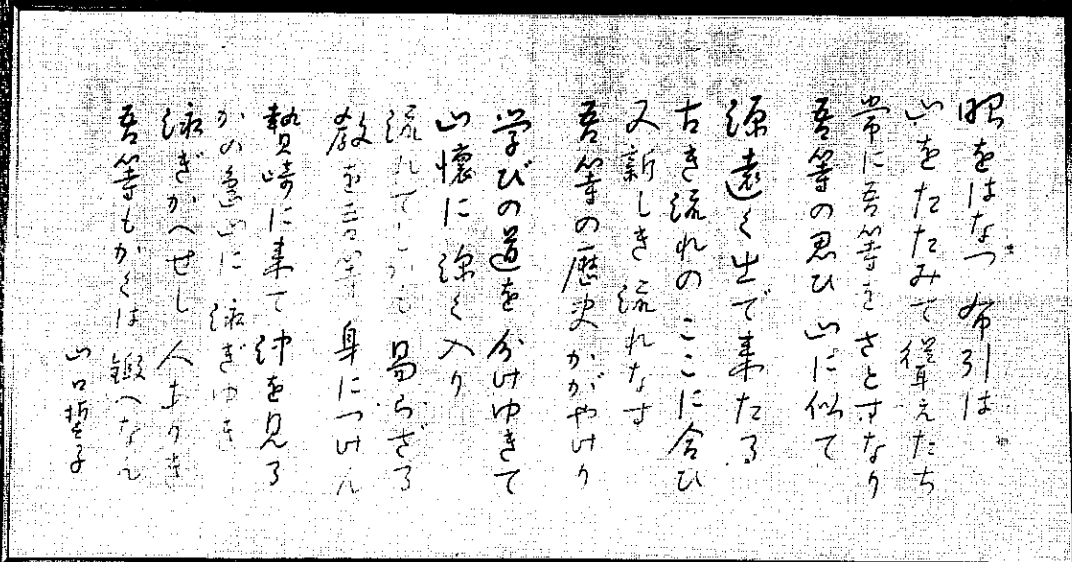 眼をはなつ 布引は
山をたたみて 聳えたち
常に吾等を さとすなり
吾等の思ひ 山に似て
源遠く出で来たる
古き流れの ここに合ひ
又新しき 流れなす
吾等の歴史 かがやけり
学びの道を 分けゆきて
山懐に 深く入り
流れてしかも 易らざる
教を吾等 身につけん
贄崎に来て 沖を見る
かの島山に 泳ぎゆき
泳ぎかへせし 人ありき
吾等もかくは 鍛へなん
山口誓子